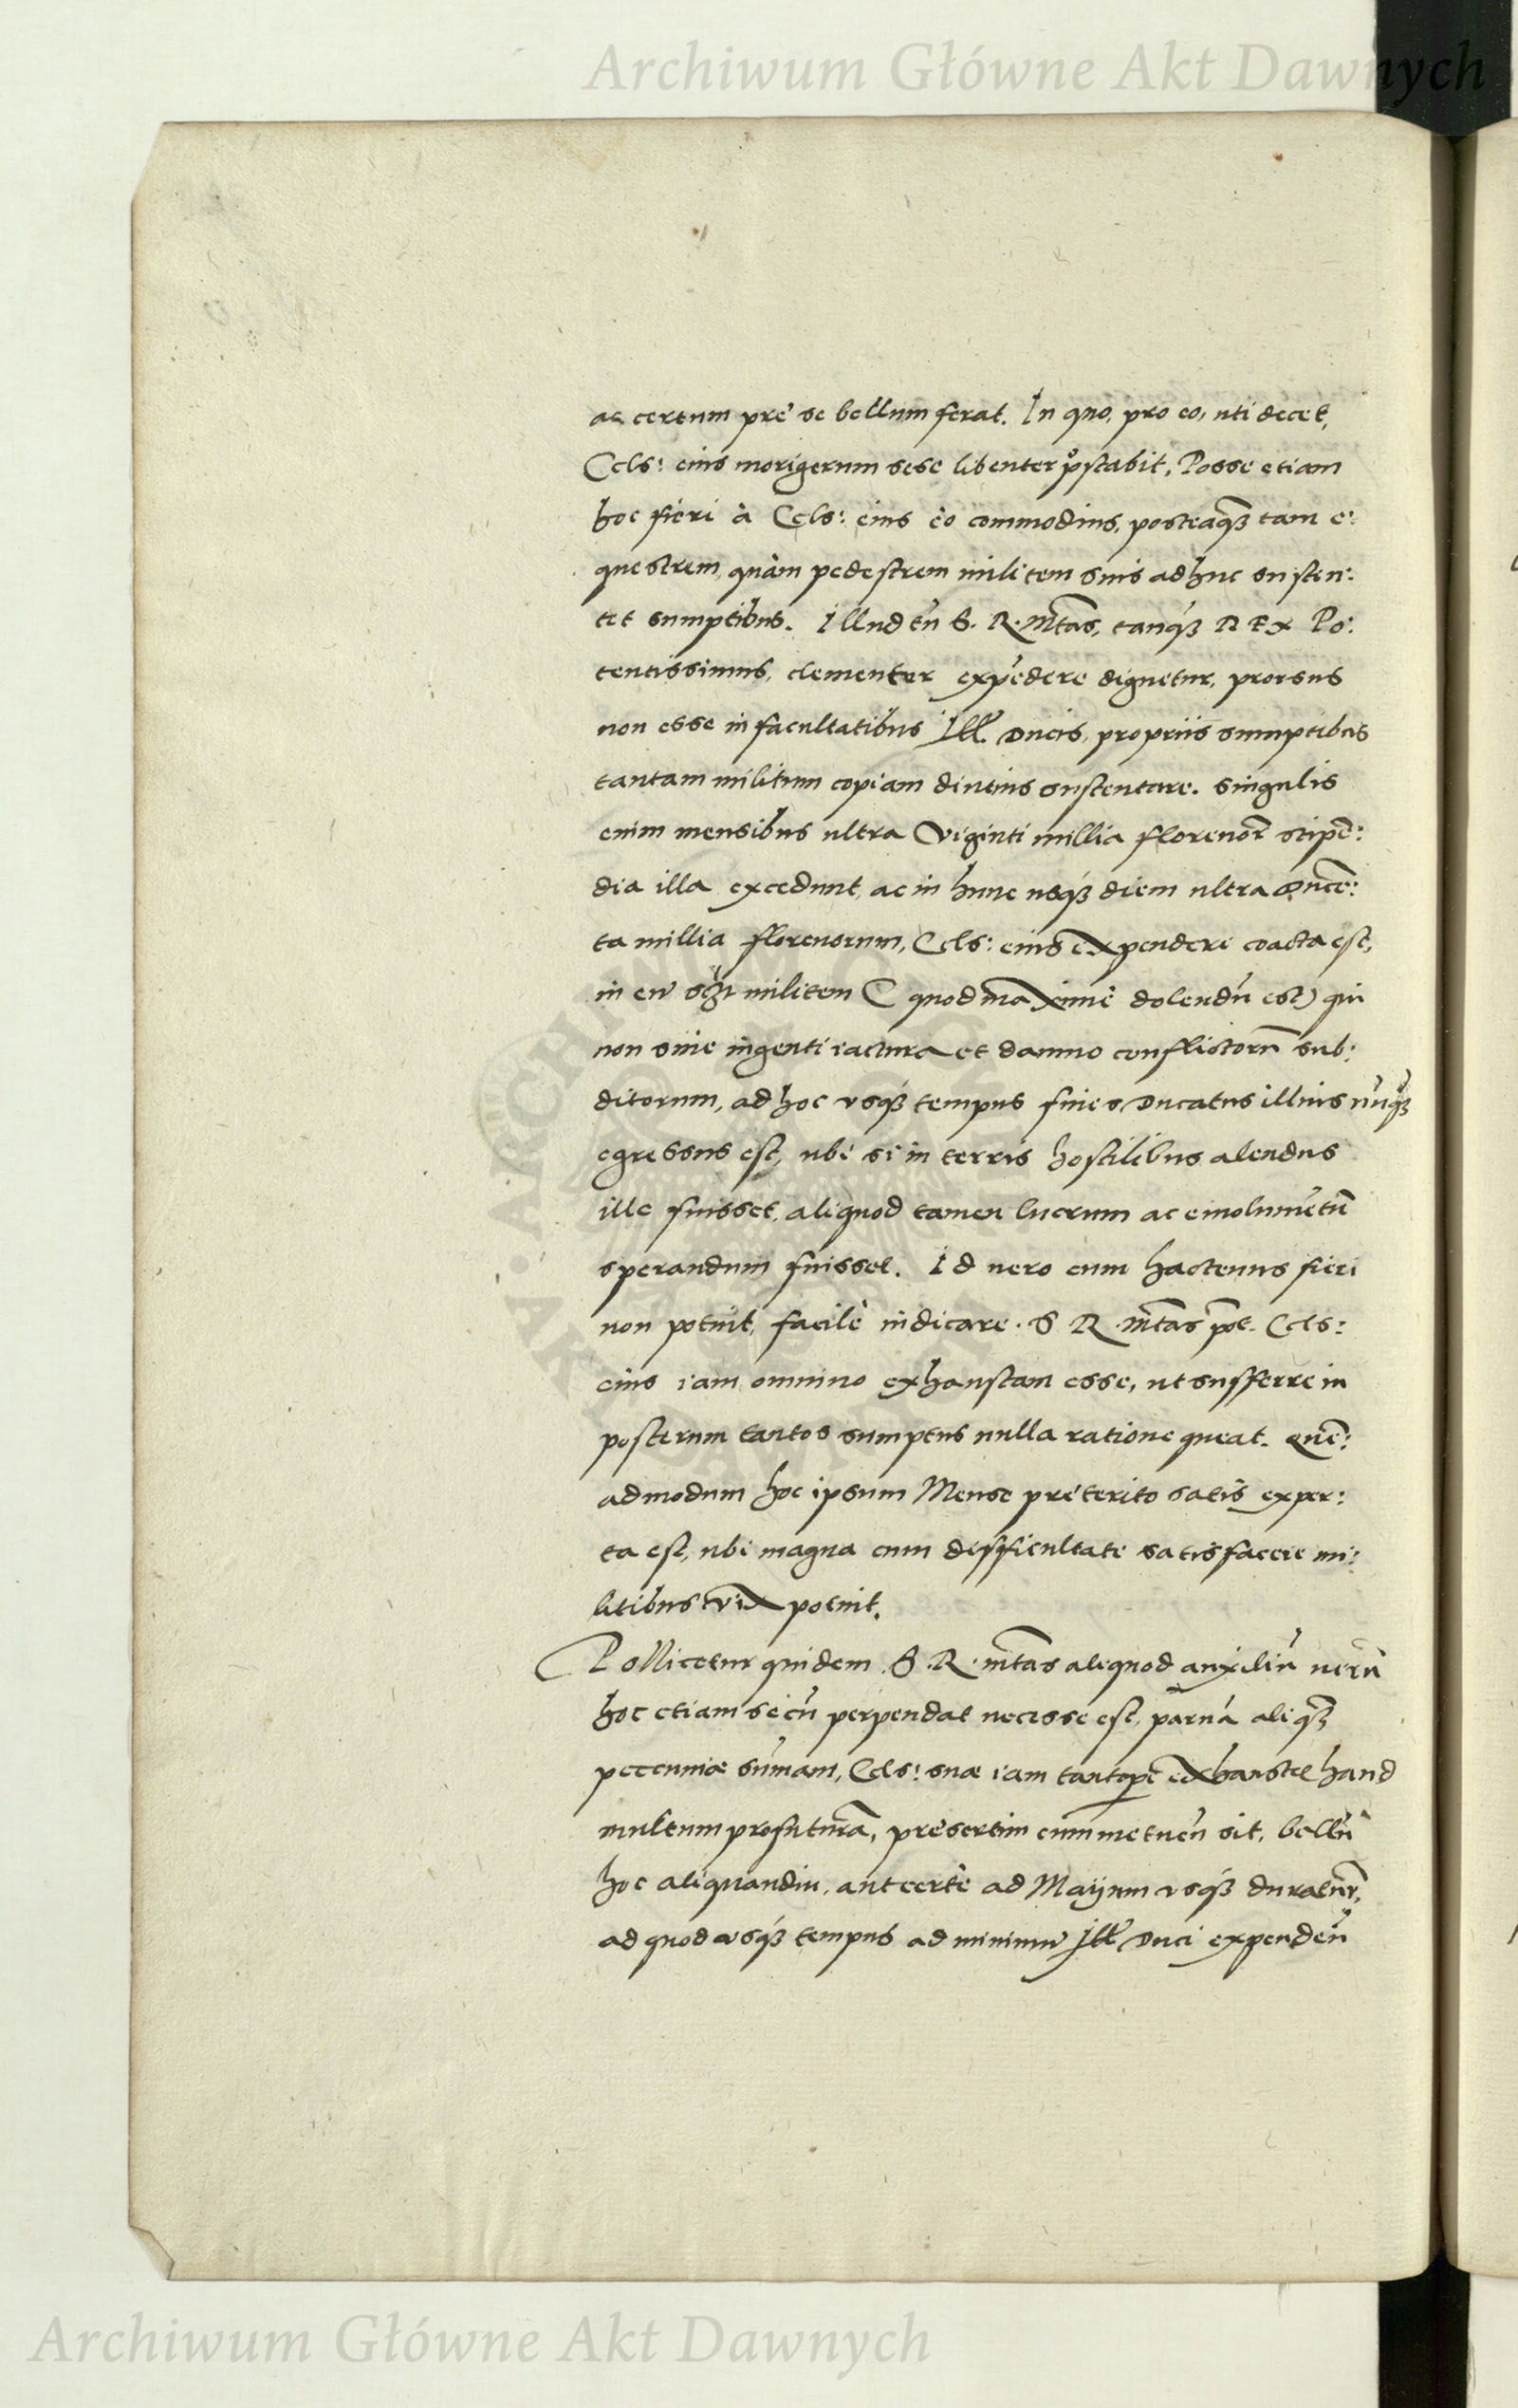 Archiwum Główne Akt Dawnych
ac certum pre se bellum ferat. In quo, pro eo, uti decet,
Cels: eius morigerum sese libenter p̊stabit. Posse etiam
hoc fieri à Cels: eius eò commodius, posteaq̃ꝫ tam e:
questrem, quàm pedestrem militem suis adhuc susten:
tet sumptibus. Illud tñ S. R. Mtas, tanq́ꝫ REX Po:
tentissimus, clementer expẽdere dignetur, prorsus
non esse in facultatibus Ill. Ducis, propriis sumptibus
tantam militum copiam diutius sustentare. Singulis
enim mensibus ultra Viginti millia florenor̃ stipẽ:
dia illa excedunt, ac in hunc usq́ꝫ diem ultra ducẽ:
ta millia florenorum, Cels: eius expendere coacta est,
in eũ militem (quod maximè dolendũ est) qui
non sine ingenti iactura et damno conflictorũ sub:
ditorum, ad hoc usq́ꝫ tempus fines Ducatus illius nũq̃ꝫ
egressus est, ubi si in terris hostilibus alendus
ille fuisset, aliquod tamen lucrum ac emolumẽtũ
sperandum fuisset. Id uero cum hactenus fieri
non potuit, facilè iudicare. S R Mtas põt. Cels:
eius iam omnino exhaustam esse, ut sufferre in
posterum tantos sumptus nulla ratione queat. Quẽ:
admodum hoc ipsum Mense preterito satis exper:
ta est, ubi magna cum difficultate satisfacere mi:
litibus vix potuit.
Pollicetur quidem S. R. Mtas aliquod auxiliũ uerũ
hoc etiam secũ perpendat necesse est, paruã aliq̃ꝫ
peccuniæ sũmam, Cels: suæ iam tantopẽ exhaustæ haud
multum profuturã, presertim cum metuẽñ sit, bellũ
hoc aliquandiu, aut certè ad Mayum usq́ꝫ duratur̃,
ad quod usq́ꝫ tempus ad minimũ Ill Duci expendẽñ
Archiwum Główne Akt Dawnych